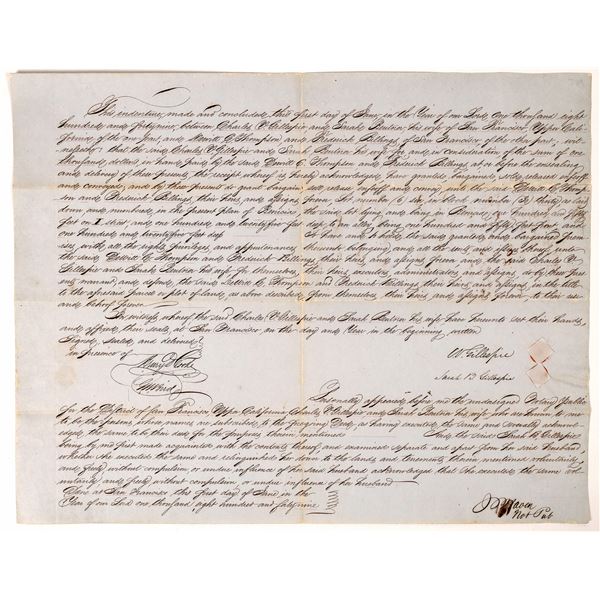 This indenture made and concluded this first day of June in the Year of our Lord One thousand eight
hundred and fortynine between Charles V. Gillespie and Sarah Bentria his wife of San Francisco Upper Cali-
fornia of the one part and Dewitt C Thompson and Frederick Billings of San Francisco of the other part, wit-
nesseth: that the said Charles V Gillespie and Sarah Bentria his wife for and in consideration of the sum of one
thousand dollars, in hand paid by the said Dewitt C. Thompson and Frederick Billings at or before the ensealing
and delivery of these presents, the receipt whereof is hereby acknowledged have granted, bargained sold, released enfeoff
and conveyed, and by these presents do grant bargain sell, release enfeoff and convey unto the said Dewitt C Thomp-
son and Frederick Billings, their heirs and assigns forever, lot number (6) six, in block number (30) thirty as laid
down and numbered in the present plan of Benicia the said lot lying and being in Benicia one hundred and fifty
feet on I street and one hundred and twentyfive feet deep to an alley being one hundred and fifty feet front and
one hundred and twentyfive feet deep To have and to hold the said granted and bargained prem-
ises, with all the rights, privileges and appurtenances thereunto belonging and all the unto
the said Dewitt C Thompson and Frederick Billings, their heirs and assigns forever and the said Charles V.
Gillespie and Sarah Bentria his wife for themselves, their heirs, executors, administrators and assigns, do by these pres-
ents, warrant and defend the said Dewitt C. Thompson and Frederick Billings their heirs and assigns, in the title
to the aforesaid piece or plot of land, as above described, from themselves, their heirs, and assigns forever to their use
and behoof forever.
In witness whereof the said Charles V Gillespie and Sarah Bentria his wife have hereunto set their hands
and affixed their seals at San Francisco on the day and Year in the beginning written
Signed, sealed, and delivered
in presence of
CV. Gillespie
Mary D Cook
Sarah B Gillespie
Wm Bird
Personally appeared before me the undersigned Notary Public
for the District of San Francisco Upper California, Charles V Gillespie and Sarah Bentria his wife, who are known to me
to be the persons whose names are subscribed to the foregoing Deed, as having executed the same and severally acknowl-
edged the same to be their deed for the purposes therein mentioned And the said Sarah B Gillespie
being by me first made acquainted with the contents thereof and examined separate and apart from her said husband
whether she executed the same and relinquished her dower to the lands and tenements therein mentioned voluntarily
and freely without compulsion or undue influence of her said husband acknowledged that she executed the same vol-
untarily and freely without compulsion or undue influence of her husband
Given at San Francisco this first day of June in the
Year of our Lord one thousand, eight hundred and fortynine
Haven
Not Pub